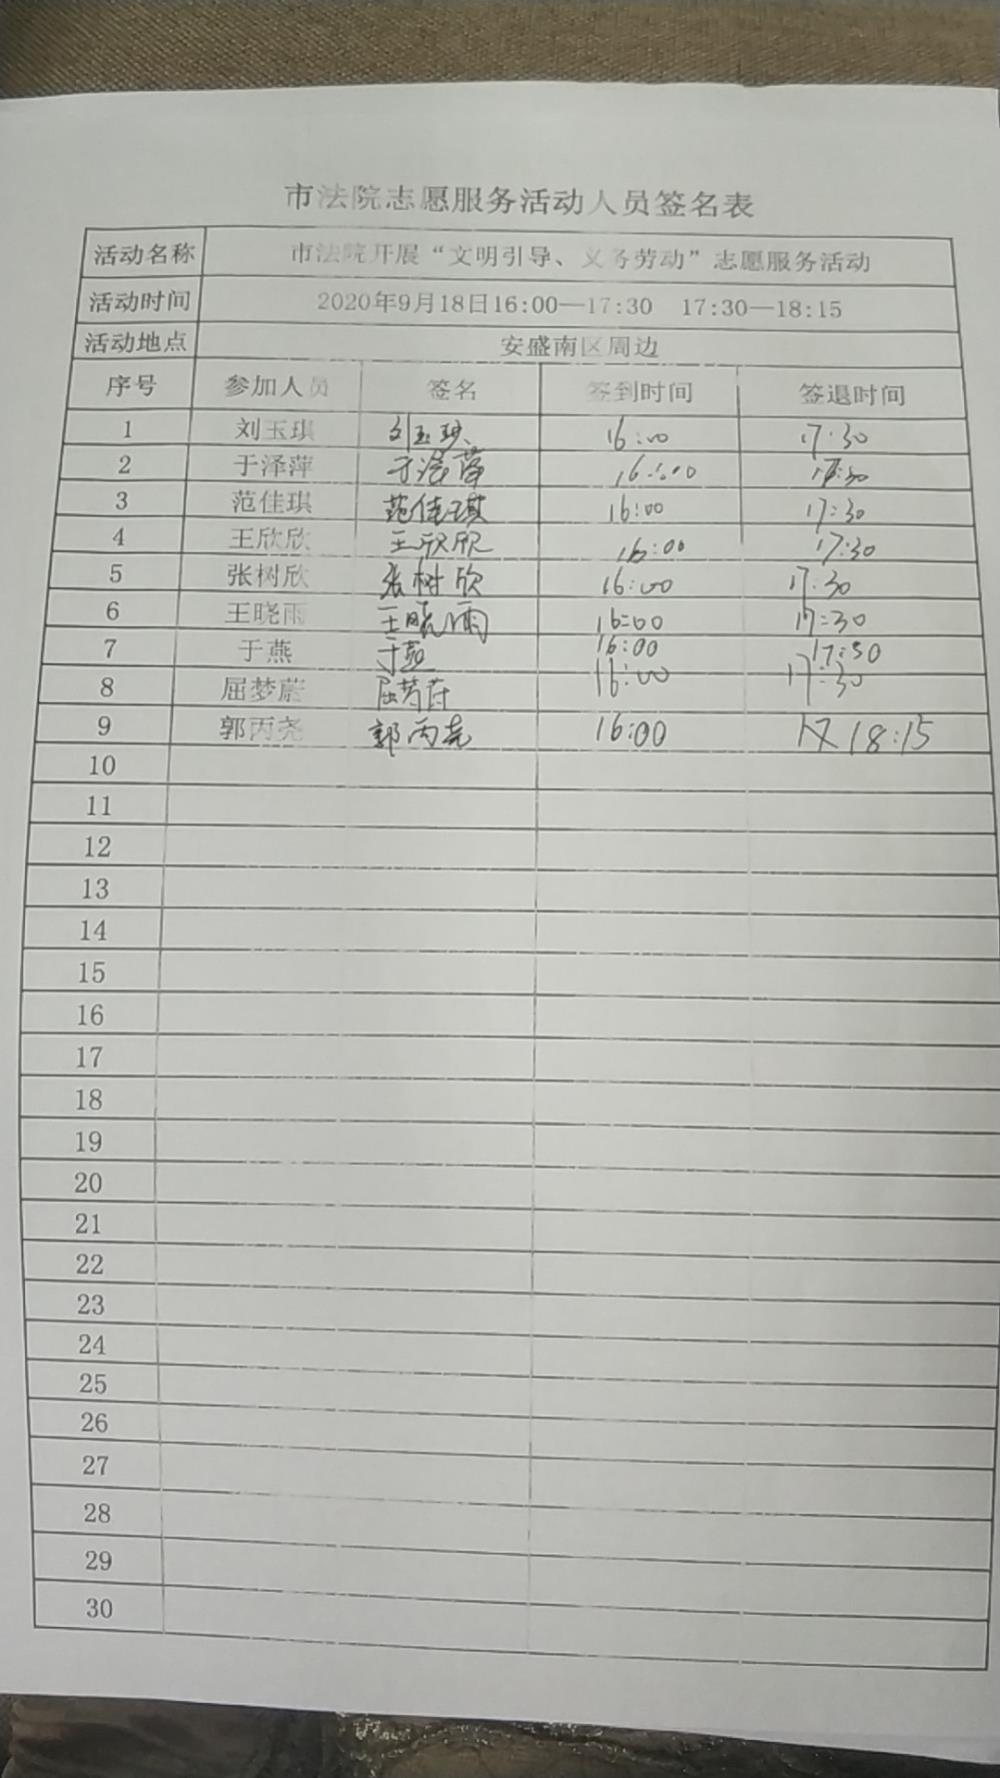 市法院志愿服务活动人员签名表
活动名称 市法院开展“文明引导、义务劳动”志愿服务活动
活动时间 2020年9月18日16:00—17:30 17:30—18:15
活动地点 安盛南区周边
序号 参加人员 签名 签到时间 签退时间
1 刘玉琪 刘玉琪 16:00 17:30
2 于泽萍 于泽萍 16:00 17:30
3 范佳琪 范佳琪 16:00 17:30
4 王欣欣 王欣欣 16:00 17:30
5 张树欣 张树欣 16:00 17:30
6 王晓雨 王晓雨 16:00 17:30
7 于燕 于燕 16:00 17:30
8 屈梦蔚 屈梦蔚 16:00 17:30
9 郭丙尧 郭丙尧 16:00 18:15
10
11
12
13
14
15
16
17
18
19
20
21
22
23
24
25
26
27
28
29
30